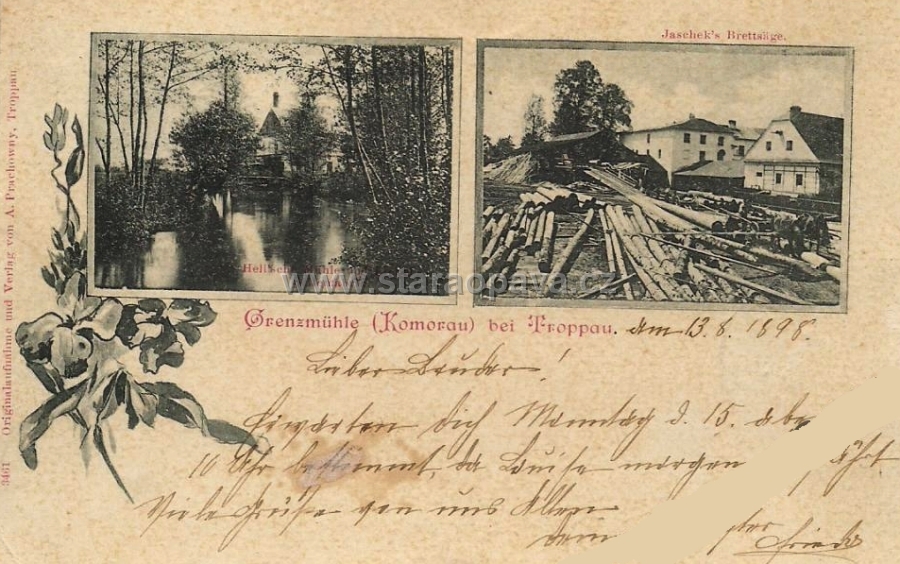 Jaschek's Brettsäge.
www.staraopava.cz
Grenzmühle (Komorau) bei Troppau. am 13.8.1898.
Lieber Bruder!
Erwarten dich Montag d. 15. abe
10 Uhr bestimmt, da Luise morgen
Viele Grüße von uns Allen
dein
3461 Originalaufnahme und Verlag von A. Prachowny, Troppau.